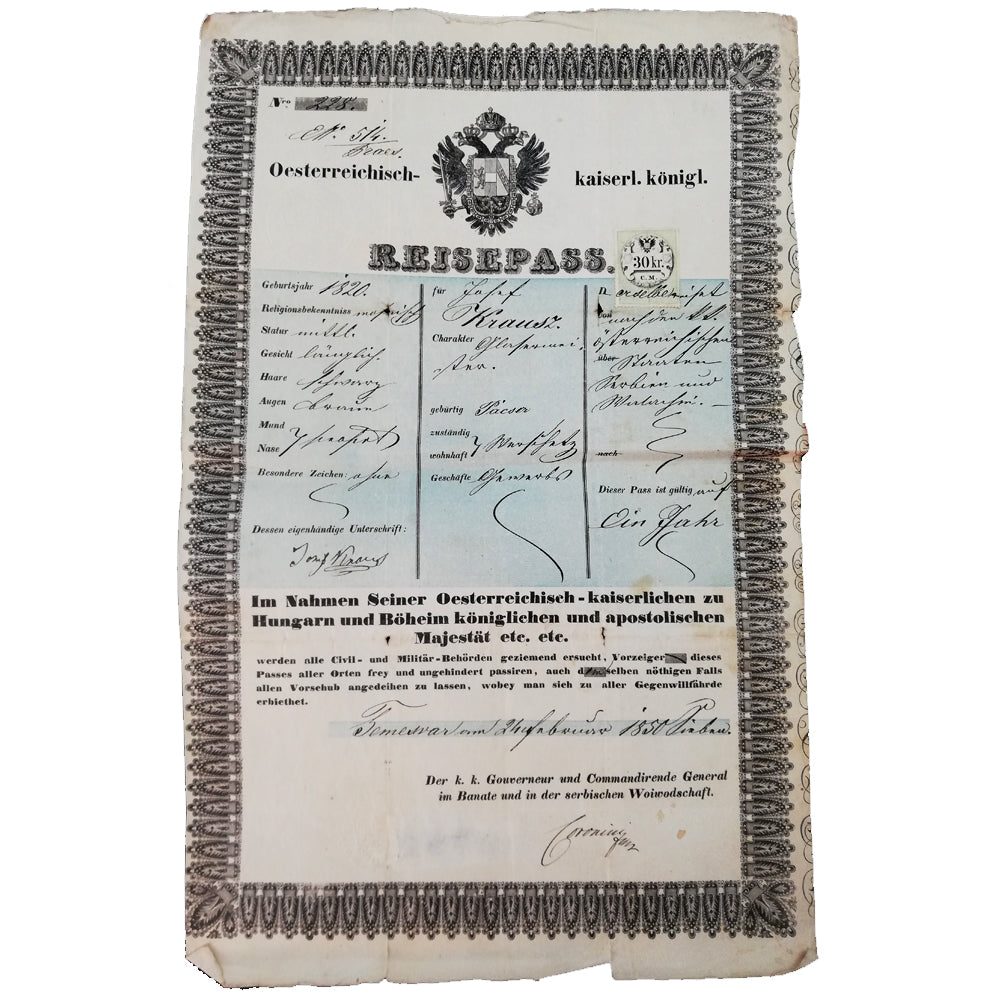 Nro 228.
No. 514.
Praes.
Oesterreichisch- kaiserl. königl.
REISEPASS.
30 kr.
C. M.
Geburtsjahr 1820.
Religionsbekenntniss mosaisch
Statur mittl.
Gesicht länglich
Haare schwarz
Augen braun
Mund
Nase } proport
Besondere Zeichen: ohne
Dessen eigenhändige Unterschrift:
für Josef
Krausz.
Charakter Glasermei-
ster.
gebürtig Pácser
zuständig
wohnhaft } Werschetz
Geschäfte Gewerbs
D erselbe reiset
von nach den k.k.
österreichischen
über Staaten
Serbien und
Walachei. —
nach
Dieser Pass ist gültig auf
Ein Jahr
Im Nahmen Seiner Oesterreichisch-kaiserlichen zu
Hungarn und Böheim königlichen und apostolischen
Majestät etc. etc.
werden alle Civil- und Militär-Behörden geziemend ersucht, Vorzeiger dieses
Passes aller Orten frey und ungehindert passiren, auch demselben nöthigen Falls
allen Vorschub angedeihen zu lassen, wobey man sich zu aller Gegenwillfährde
erbiethet.
Temesvar am 24 Februar 1850 Sieben.
Der k. k. Gouverneur und Commandirende General
im Banate und in der serbischen Woiwodschaft.
Coronini